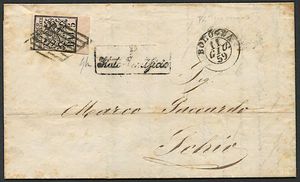 BOLOGNA
11
GIU
59
Stato Pontificio
Sig
Marco Zaccardo
Schio